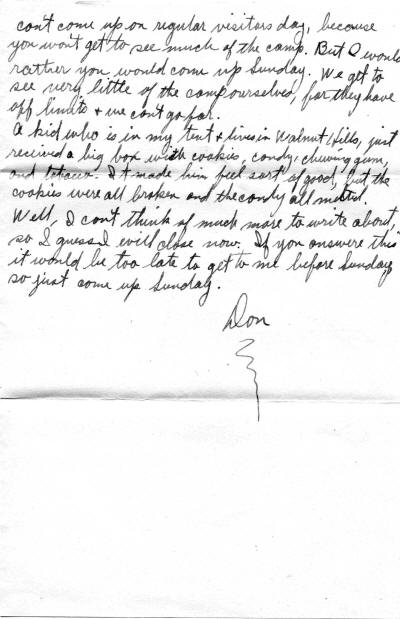 can't come up on regular visitors day, because
you won't get to see much of the camp. But I would
rather you would come up Sunday. We get to
see very little of the camp ourselves, for they have
off limits & we can't go far.
A kid who is in my tent & lives in Walnut Hills, just
received a big box with cookies, candy, chewing gum,
and tobacco. It made him feel sort of good, but the
cookies were all broken and the candy all melted.
Well, I can't think of much more to write about,
so I guess I will close now. If you answere this
it would be too late to get to me before Sunday
so just come up Sunday.
Don